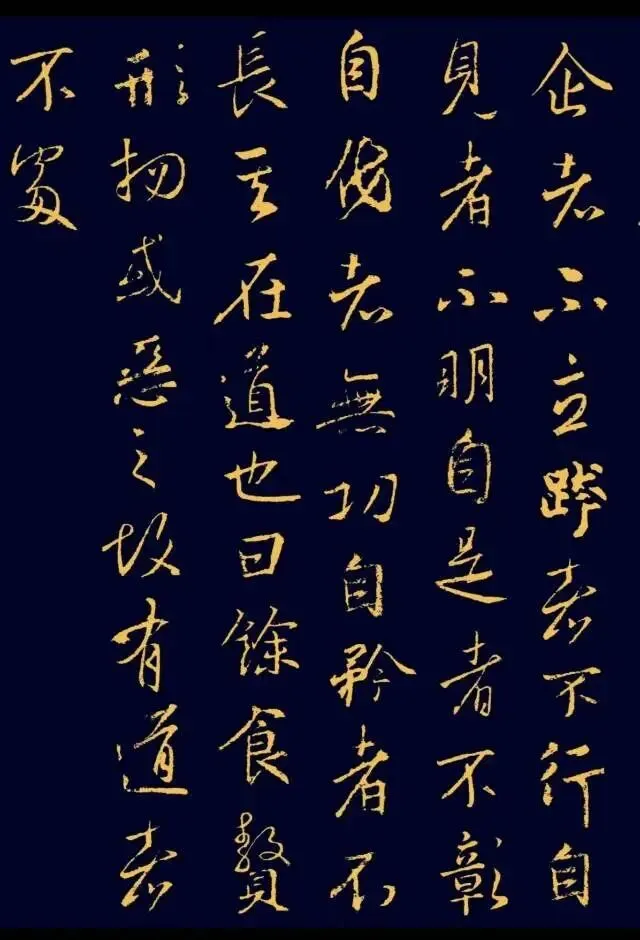 企者不立跨者不行自
見者不明自是者不彰
自伐者無功自矜者不
長其在道也曰餘食贅
形物或惡之故有道者
不處